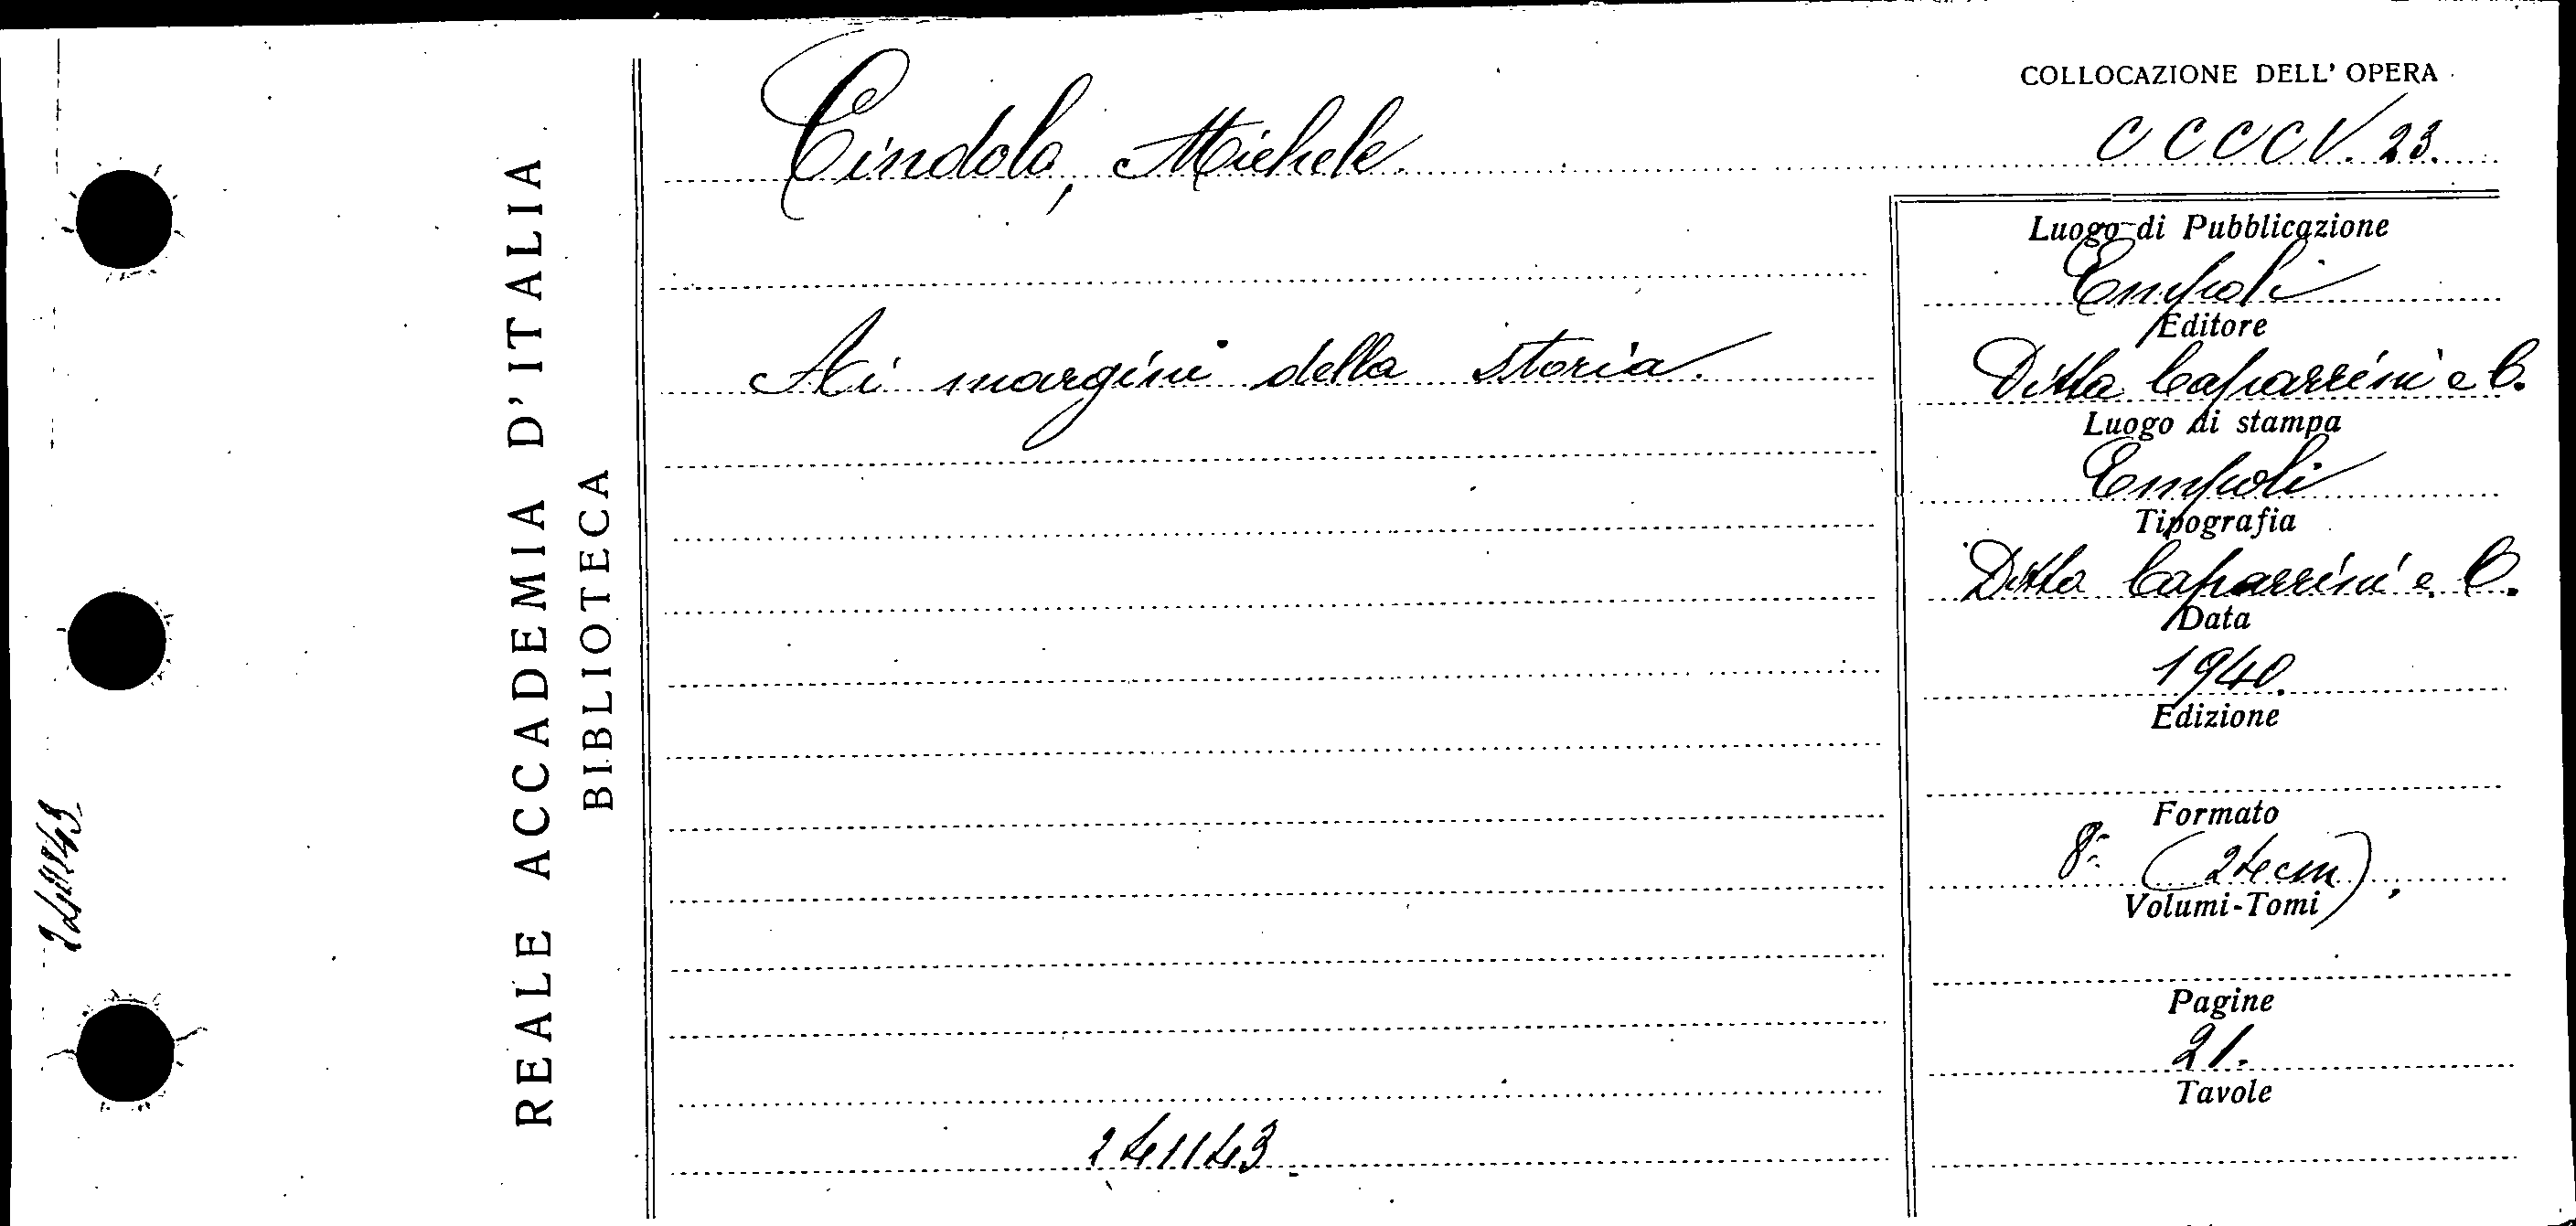 REALE ACCADEMIA D'ITALIA
BIBLIOTECA
COLLOCAZIONE DELL' OPERA
CCCCV. 23.
Cindolo, Michele.
Ai margini della storia.
Luogo di Pubblicazione
Empoli
Editore
Ditta Caparrini e C.
Luogo di stampa
Empoli
Tipografia
Ditta Caparrini e C.
Data
1940.
Edizione
Formato
8° (24 cm),
Volumi-Tomi
Pagine
21.
Tavole
241143